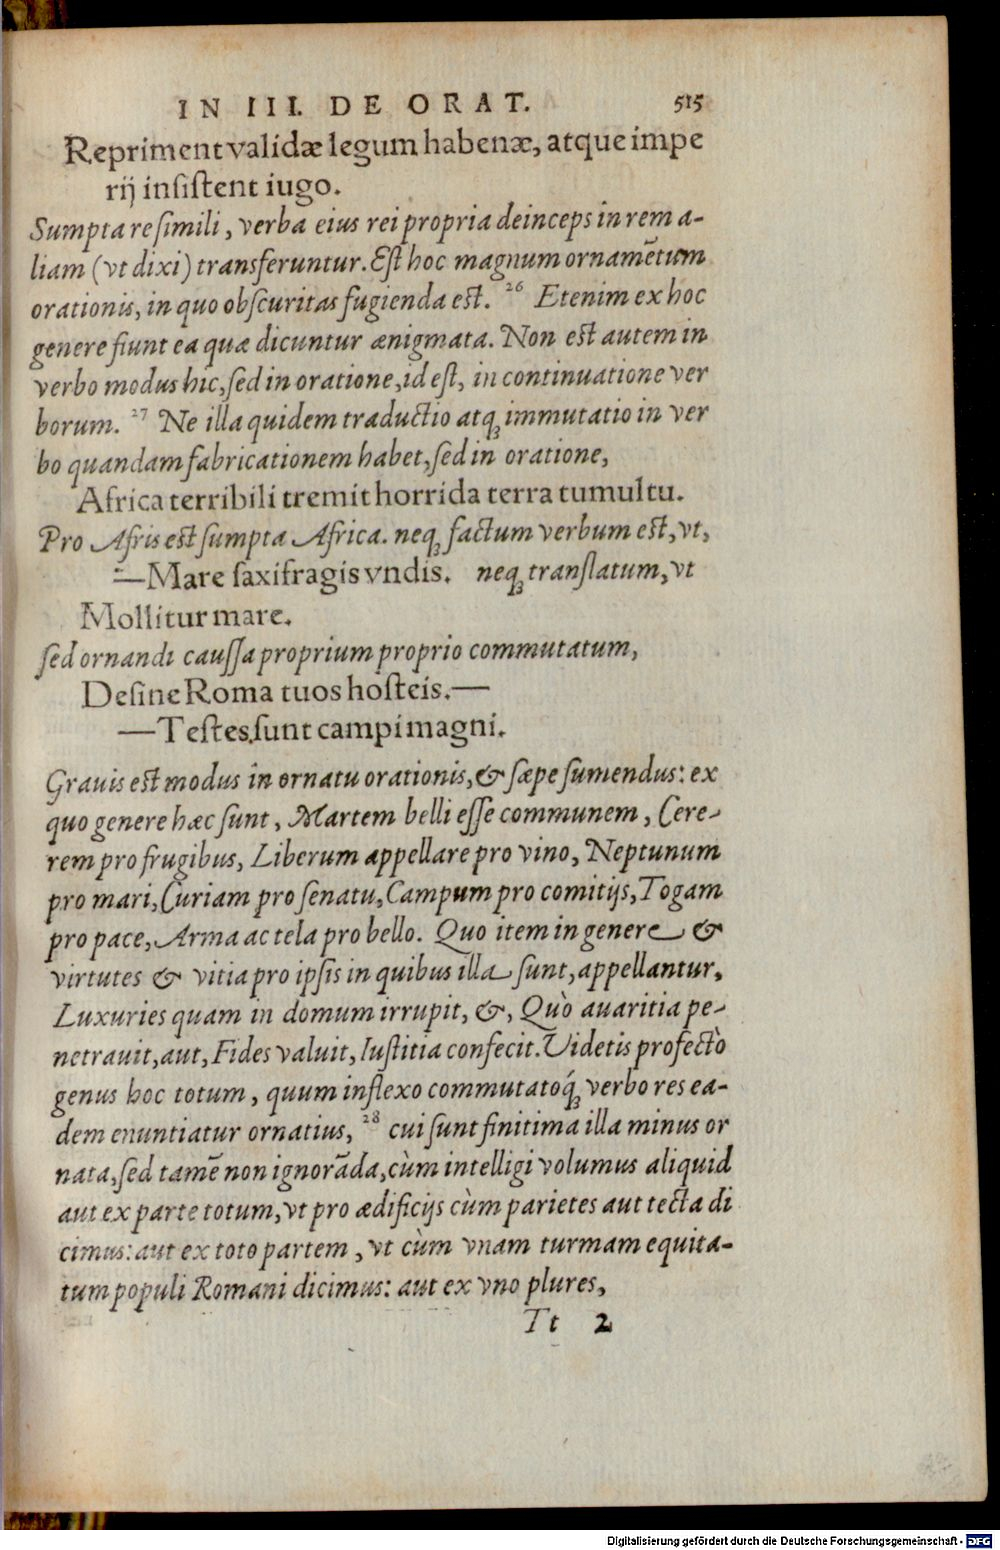 IN III. DE ORAT. 515
Repriment validæ legum habenæ, atque impe
rij insistent iugo.
Sumpta re simili, verba eius rei propria deinceps in rem a-
liam (vt dixi) transferuntur. Est hoc magnum ornamẽtum
orationis, in quo obscuritas fugienda est. 26 Etenim ex hoc
genere fiunt ea quæ dicuntur ænigmata. Non est autem in
verbo modus hic, sed in oratione, id est, in continuatione ver
borum. 27 Ne illa quidem traductio atq; immutatio in ver
bo quandam fabricationem habet, sed in oratione,
Africa terribili tremit horrida terra tumultu.
Pro Afris est sumpta Africa. neq; factum verbum est, vt,
—Mare saxifragis vndis. neq; translatum, vt
Mollitur mare.
sed ornandi caussa proprium proprio commutatum,
Desine Roma tuos hosteis.—
—Testes sunt campi magni.
Grauis est modus in ornatu orationis, & sæpe sumendus: ex
quo genere hæc sunt, Martem belli esse communem, Cere-
rem pro frugibus, Liberum appellare pro vino, Neptunum
pro mari, Curiam pro senatu, Campum pro comitijs, Togam
pro pace, Arma ac tela pro bello. Quo item in genere &
virtutes & vitia pro ipsis in quibus illa sunt, appellantur,
Luxuries quam in domum irrupit, &, Quò auaritia pe-
netrauit, aut, Fides valuit, Iustitia confecit. Videtis profectò
genus hoc totum, quum inflexo commutatoq́; verbo res ea-
dem enuntiatur ornatius, 28 cui sunt finitima illa minus or
nata, sed tamẽ non ignorãda, cùm intelligi volumus aliquid
aut ex parte totum, vt pro ædificijs cùm parietes aut tecta di
cimus: aut ex toto partem, vt cùm vnam turmam equita-
tum populi Romani dicimus: aut ex vno plures,
Tt 2
Digitalisierung gefördert durch die Deutsche Forschungsgemeinschaft - DFG